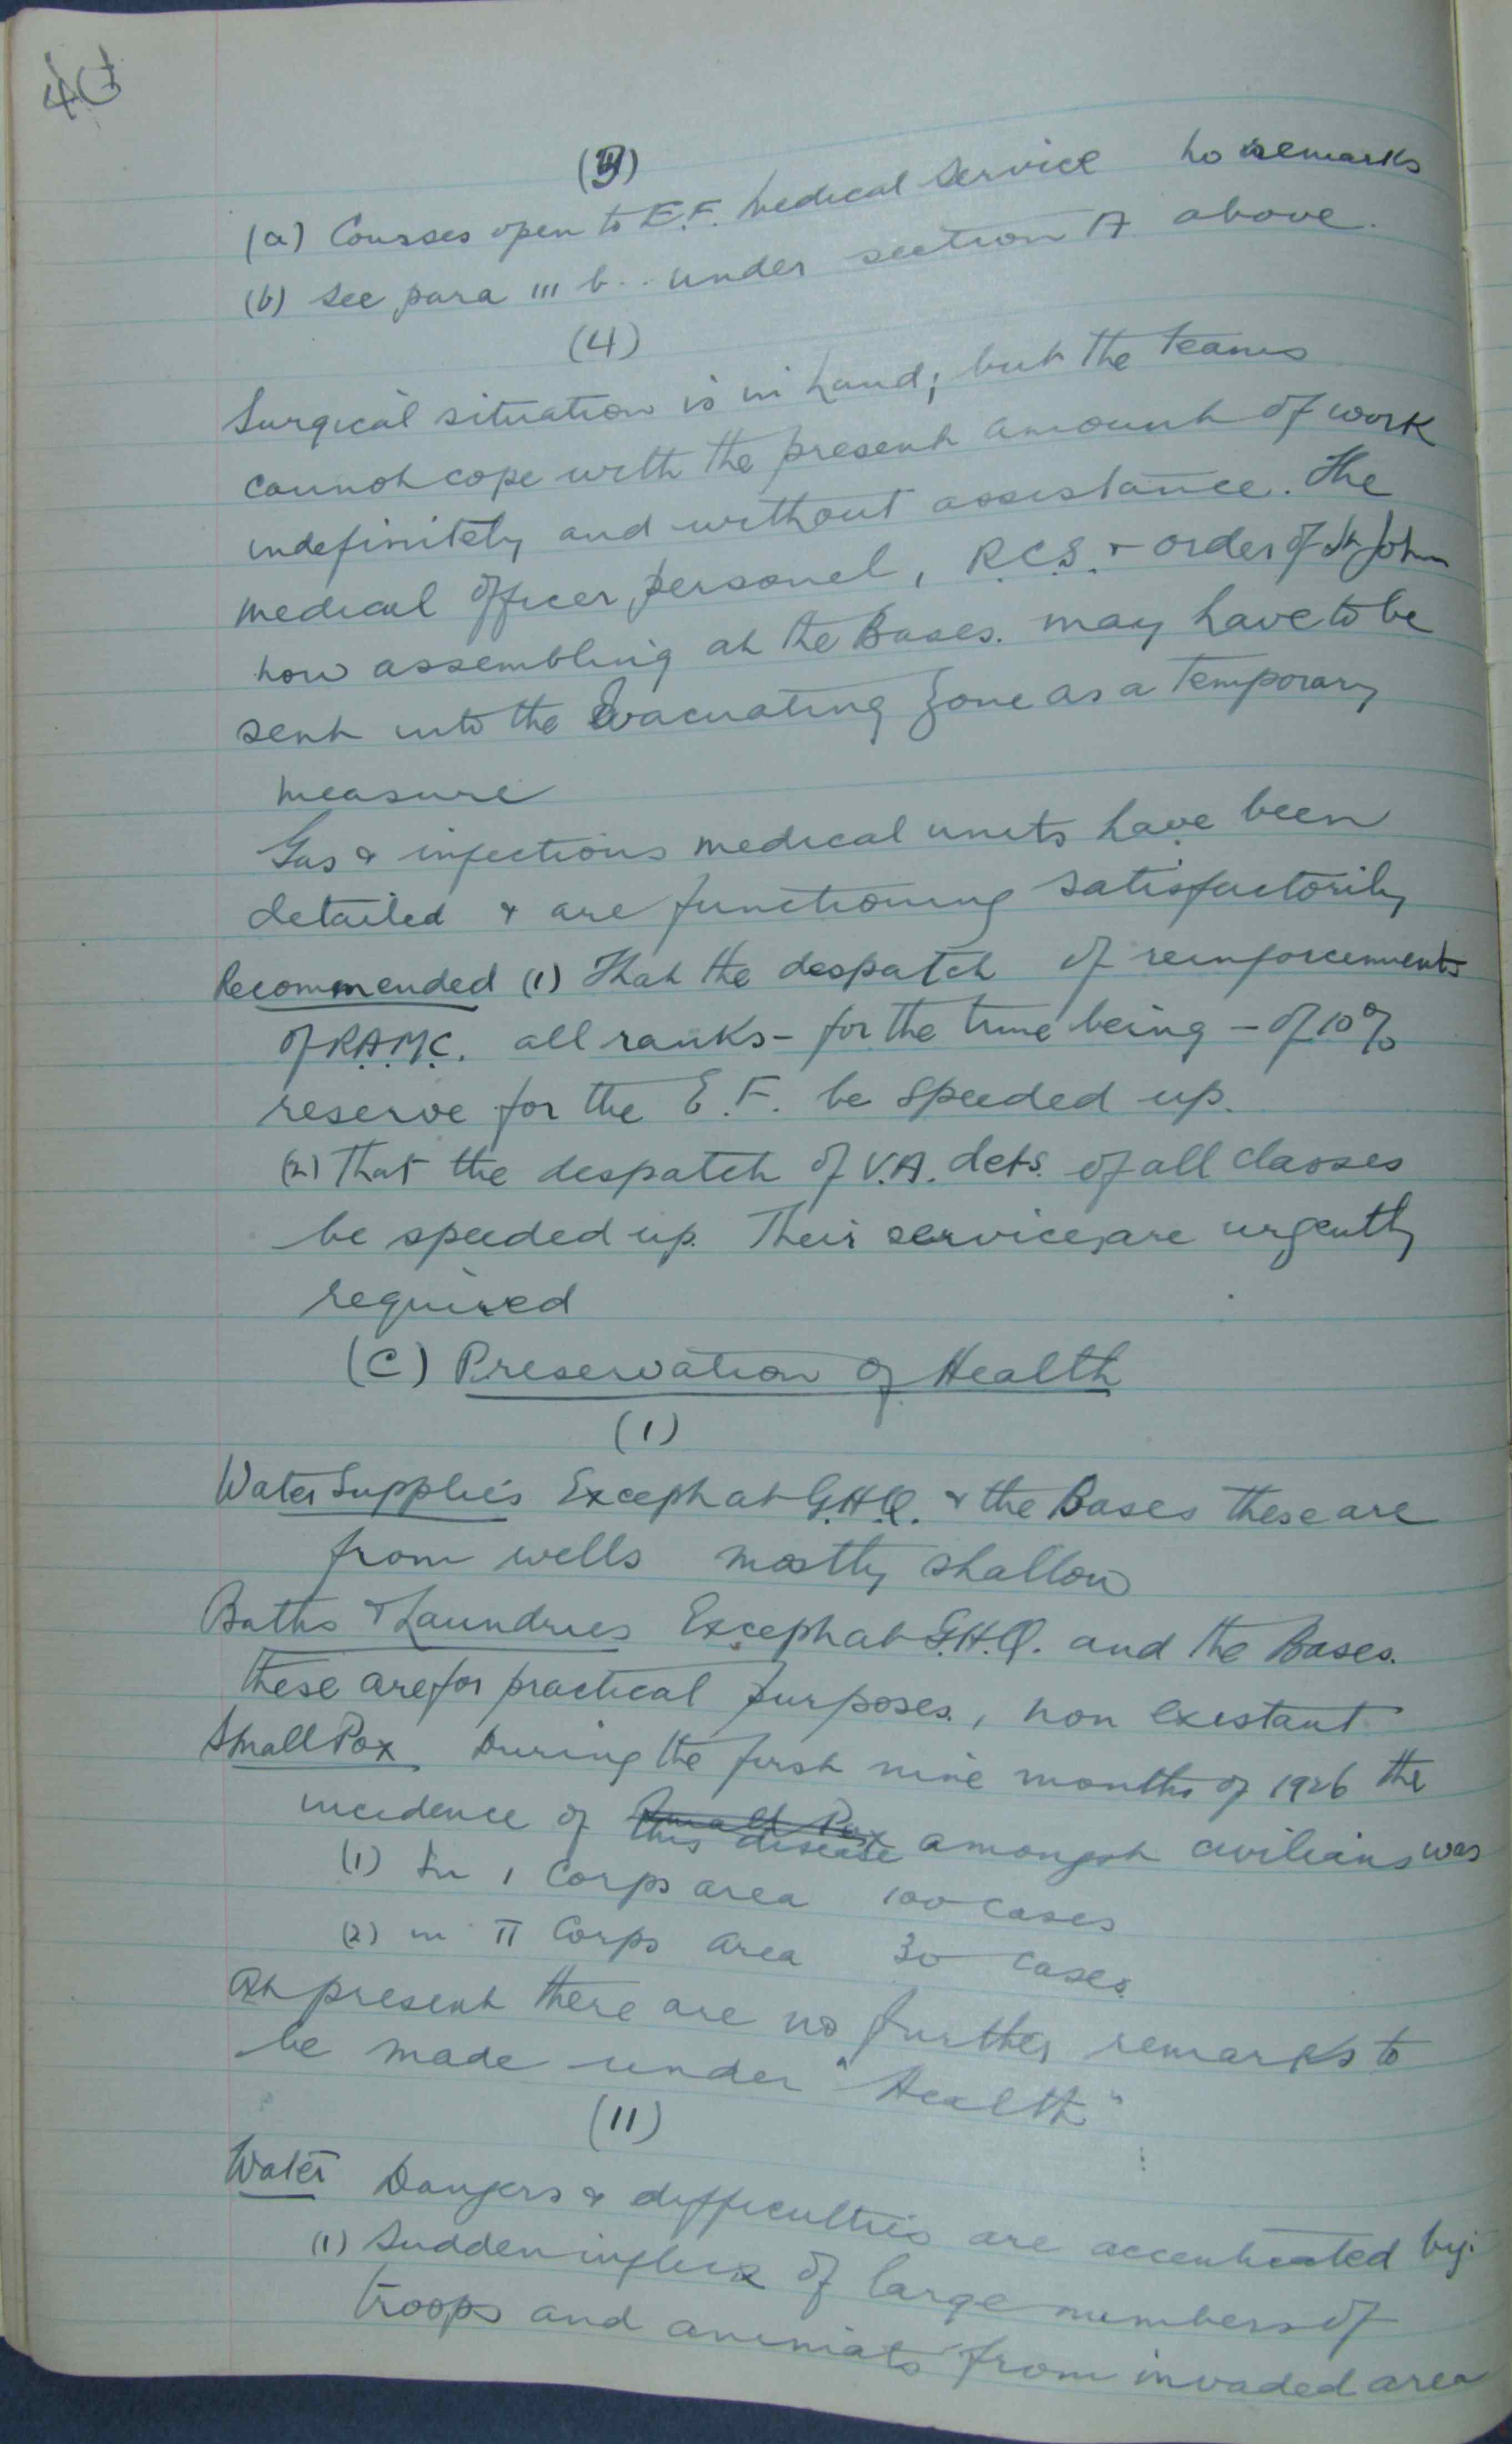 (3)
(a) Courses open to E.F. Medical Service no remarks
(b) See para III b.. under section A above.
(4)
Surgical situation is in hand; but the teams
cannot cope with the present amount of work
indefinitely and without assistance. The
medical officer personel, R.C.S. & order of St John
now assembling at the Bases. may have to be
sent into the Evacuating Zone as a temporary
measure
Gas & infectious medical units have been
detailed & are functioning satisfactorily
Recommended (1) That the despatch of reinforcements
of R.A.M.C. all ranks - for the time being - of 10%
reserve for the E.F. be speeded up.
(2) That the despatch of V.A. dets. of all classes
be speeded up. Their services are urgently
required
(C) Preservation of Health
(1)
Water Supplies Except at G.H.Q. & the Bases these are
from wells mostly shallow
Baths & Laundries Except at G.H.Q. and the Bases.
these are for practical purposes, non existant
Small Pox During the first nine months of 1926 the
incidence of Small Pox this disease amongst civilians was
(1) In I Corps area 100 cases
(2) in II Corps area 30 cases
At present there are no further remarks to
be made under "Health"
(II)
Water Dangers & difficulties are accentuated by:
(1) Sudden influx of large numbers of
troops and animals from invaded area